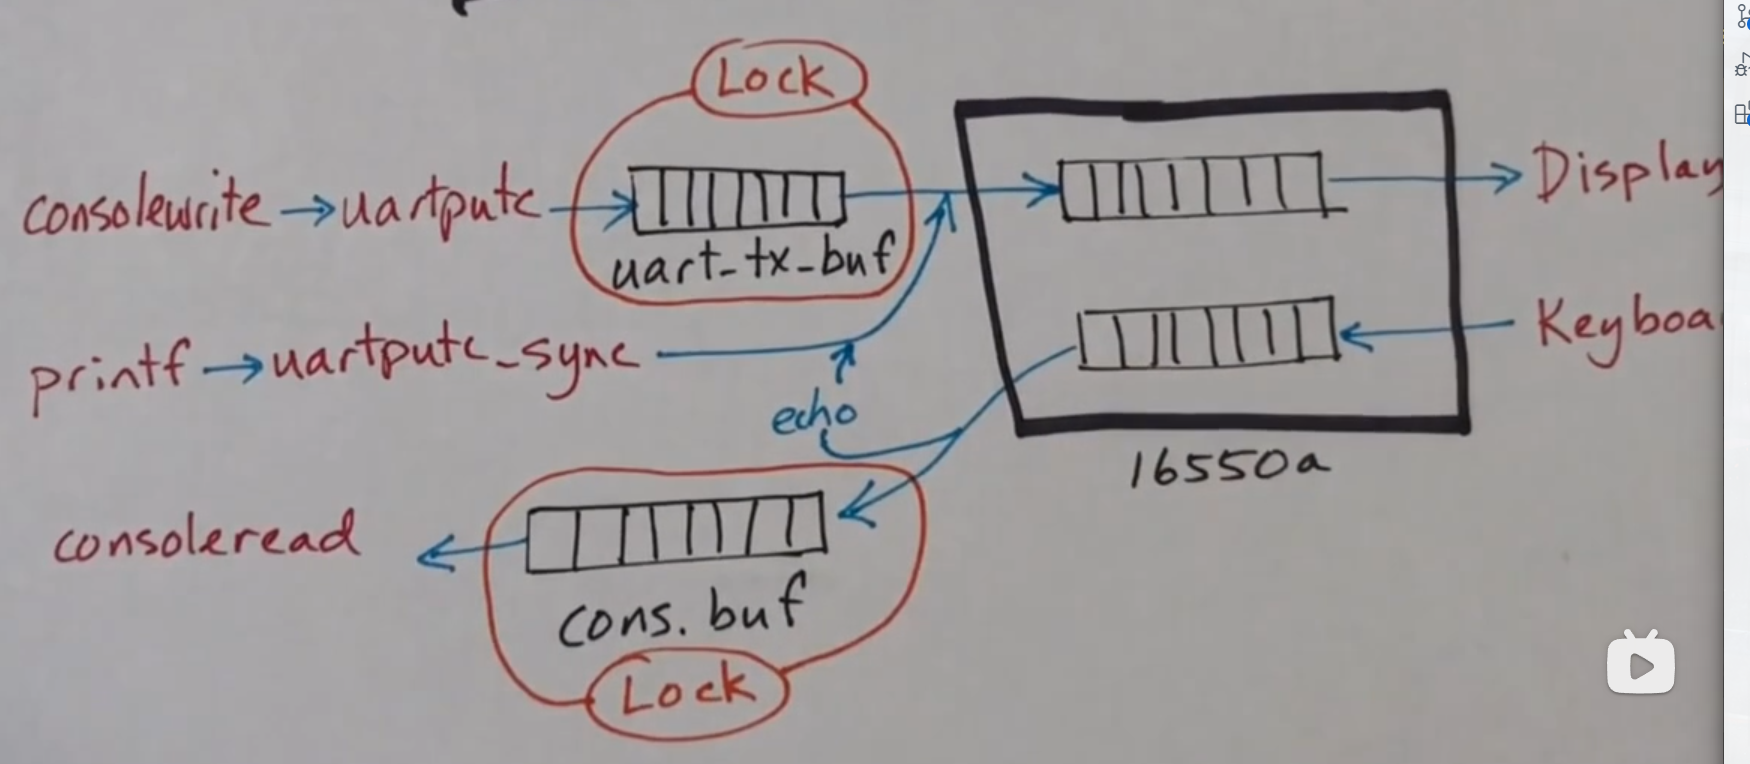 Lock
consolewrite → uartputc
uart_tx_buf
Display
printf → uartputc_sync
Keyboa
echo
16550a
consoleread
cons.buf
Lock